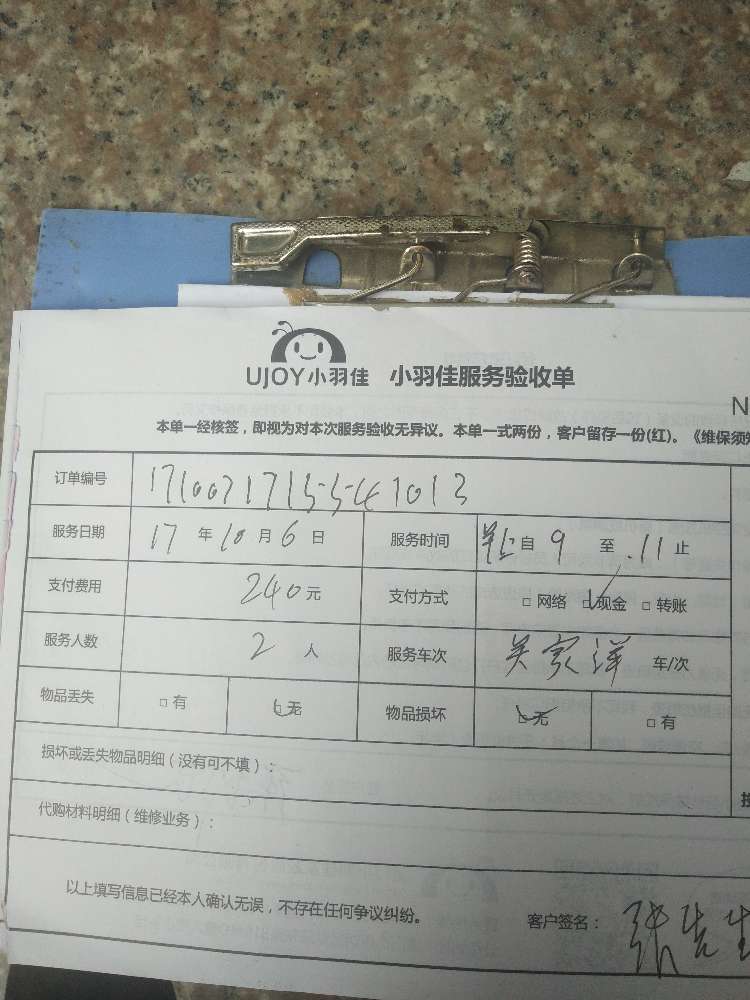 UJOY小羽佳 小羽佳服务验收单
N
本单一经核签，即视为对本次服务验收无异议。本单一式两份，客户留存一份(红)。《维保须知
订单编号
服务日期 17年10月6日 服务时间 自9至11止
支付费用 240元 支付方式 □网络 ☑现金 □转账
服务人数 2人 服务车次 吴家洋 车/次
物品丢失 □有 ☑无 物品损坏 ☑无 □有
损坏或丢失物品明细（没有可不填）：
代购材料明细（维修业务）：
以上填写信息已经本人确认无误，不存在任何争议纠纷。 客户签名：张先生